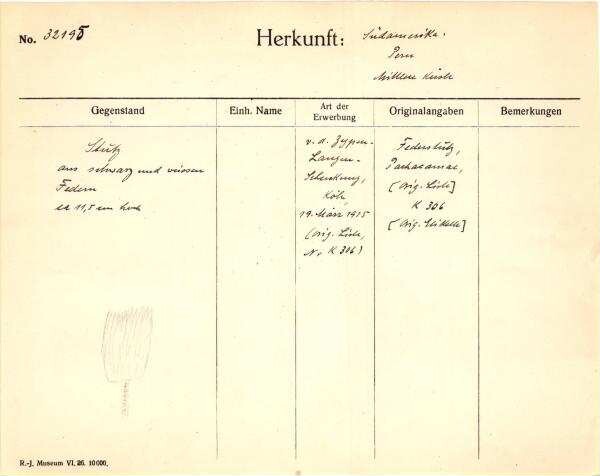 No. 32195
Herkunft:
Südamerika.
Peru
Mittlere Küste
Gegenstand
Einh. Name
Art der
Erwerbung
Originalangaben
Bemerkungen
Stutz
aus schwarz und weissen
Federn
ca 11,5 cm hoch
v. d. Zypen-
Langen-
Schenkung,
Köln,
19. März 1915
(Orig. Liste,
Nr K 306)
Federstutz,
Pachacamac,
[Orig. Liste]
K 306
[Orig. Etikette]
R.-J. Museum VI. 26. 10000.